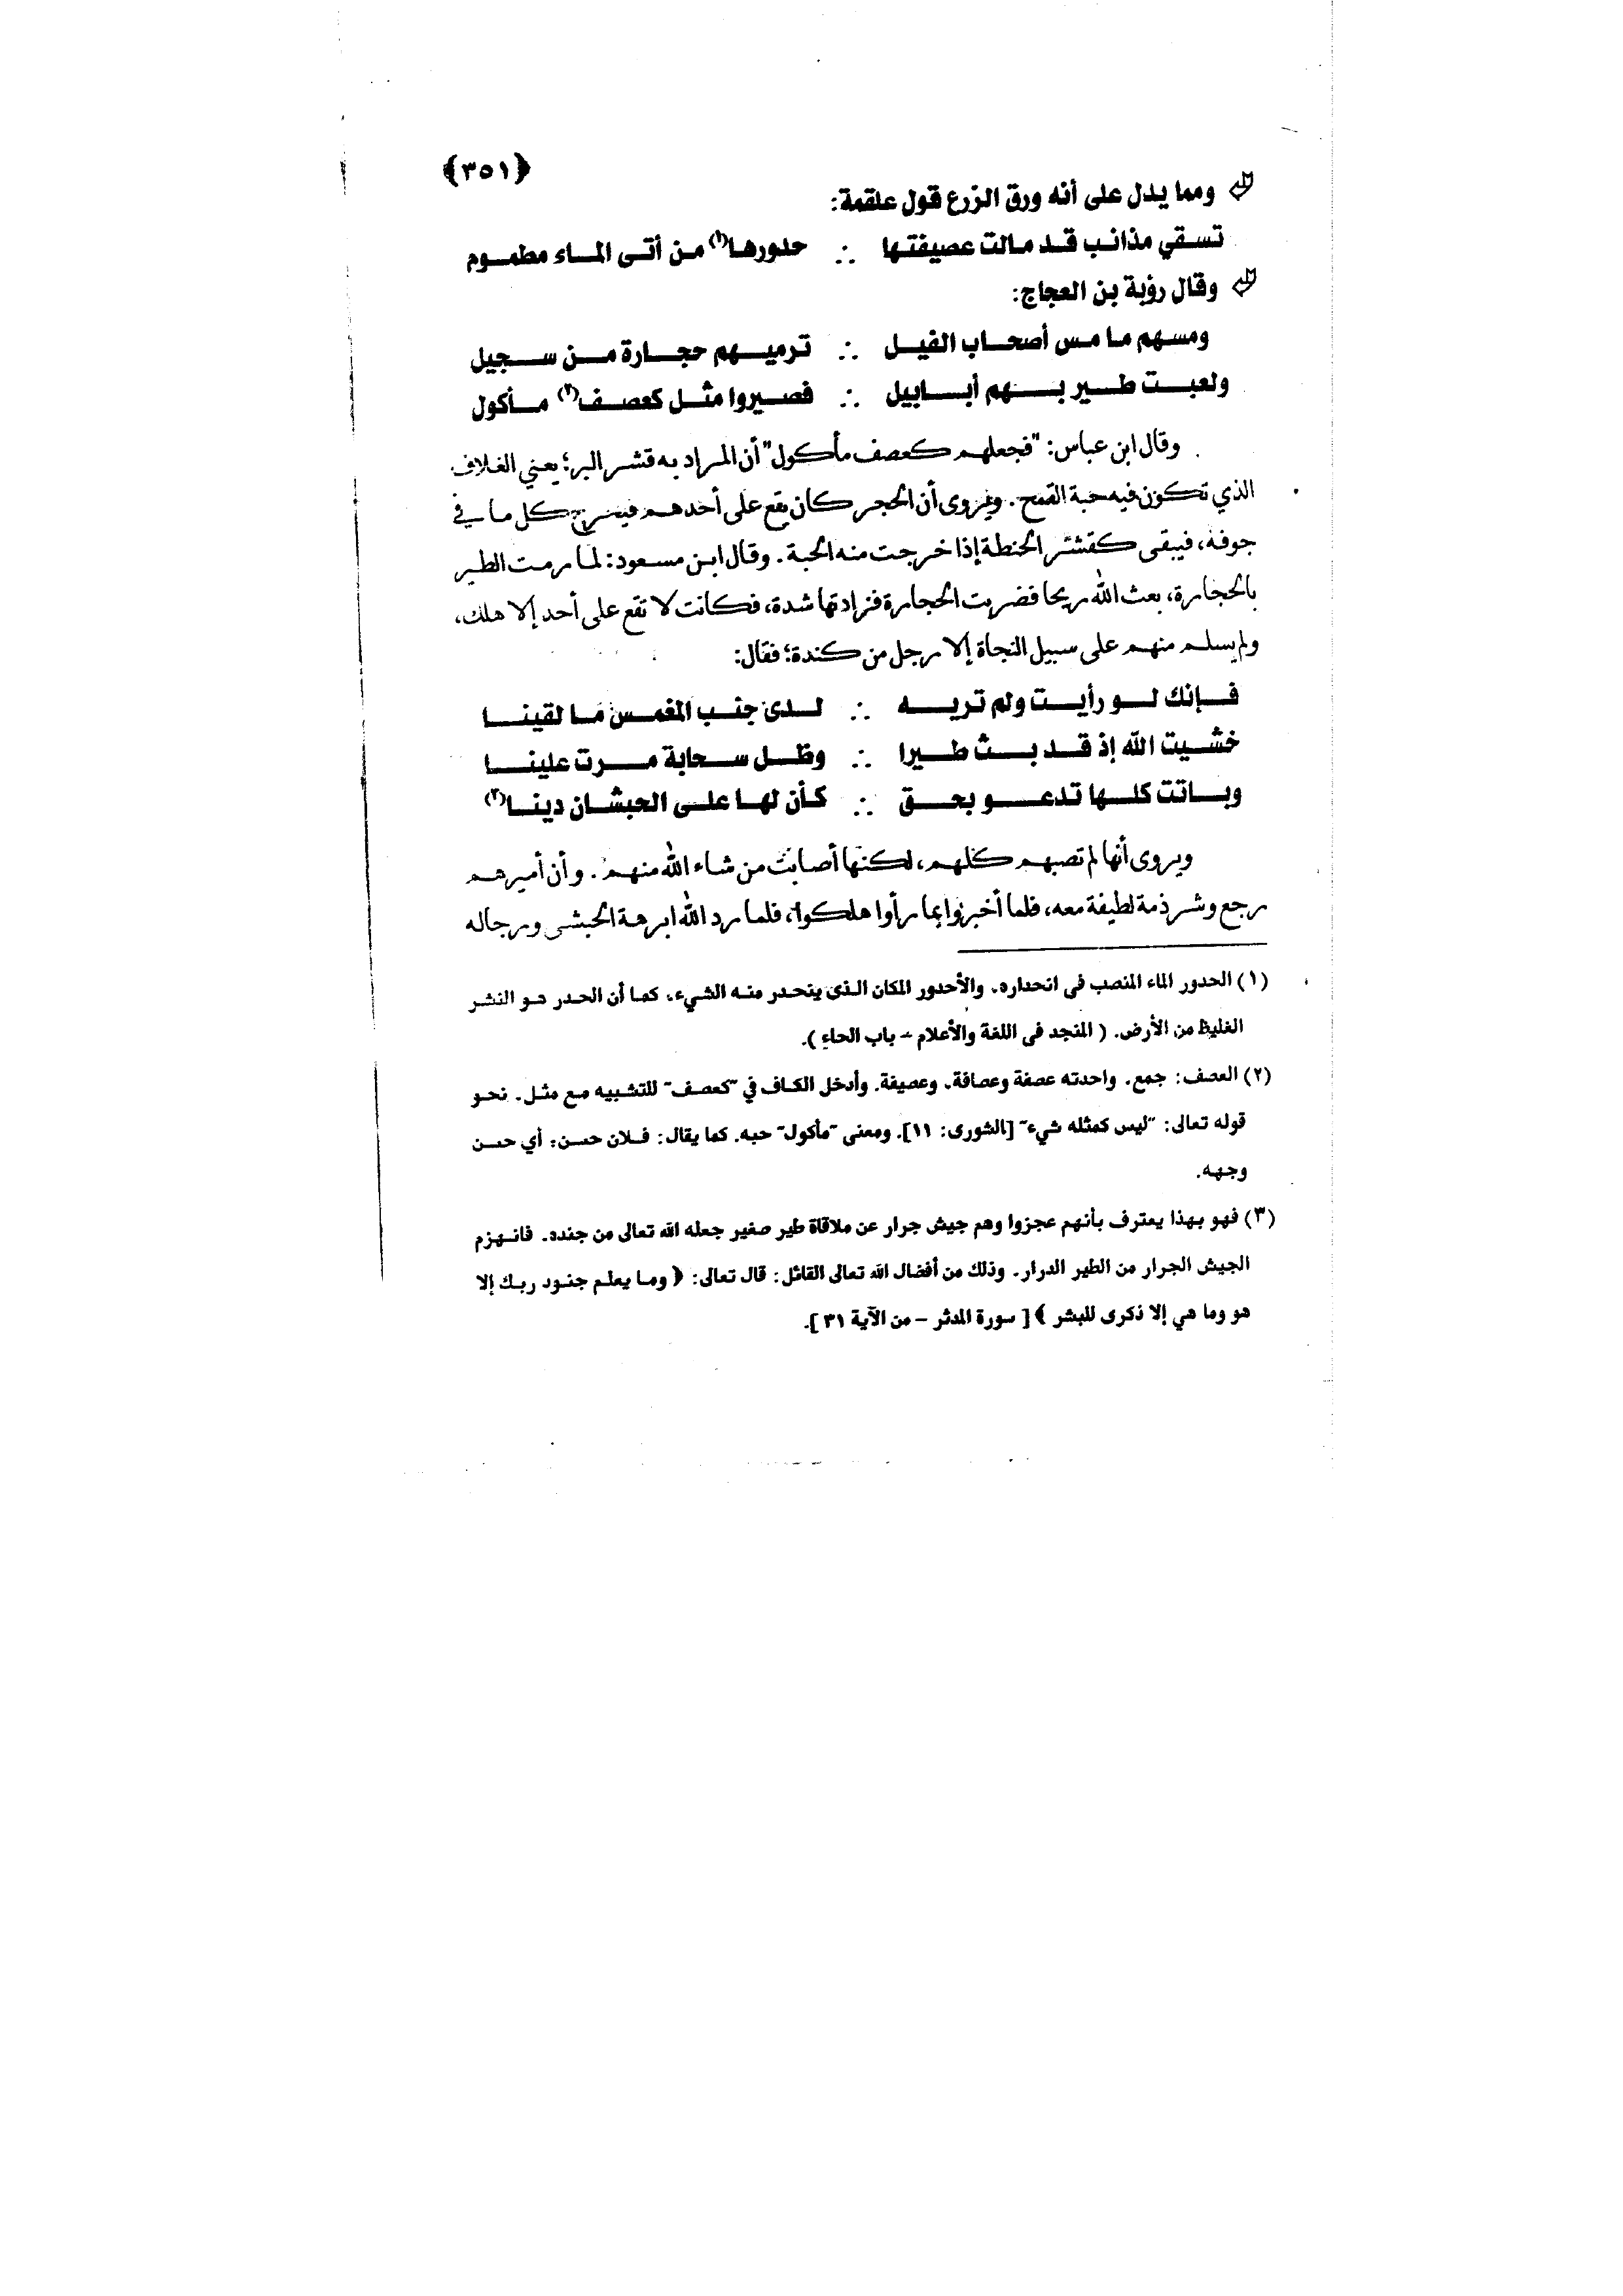 ﴿٣٥١﴾
ومما يدل على أنه ورق الزرع قول علقمة:
تسقي مذانب قد مالت عصيفتها ∴ حدورها(١) من أتى الماء مطموم
وقال رؤبة بن العجاج:
ومسهم ما مس أصحاب الفيل ∴ ترميهم حجارة من سجيل
ولعبت طير بهم أبابيل ∴ فصيروا مثل كعصف(٢) مأكول
وقال ابن عباس: "فجعلهم كعصف مأكول" أن المراد به قشر البر؛ يعني الغلاف
الذي تكون فيه حبة القمح. ويروى أن الحجر كان يقع على أحدهم فيخرج كل ما في
جوفه، فيبقى كقشر الحنطة إذا خرجت منه الحبة. وقال ابن مسعود: لما رمت الطير
بالحجارة، بعث الله ريحا فضربت الحجارة فزادتها شدة، فكانت لا تقع على أحد إلا هلك،
ولم يسلم منهم على سبيل النجاة إلا رجل من كندة؛ فقال:
فإنك لو رأيت ولم تريه ∴ لدى جنب المغمس ما لقينا
خشيت الله إذ قد بث طيرا ∴ وظل سحابة مرت علينا
وباتت كلها تدعو بحق ∴ كأن لها على الحبشان دينا(٣)
ويروى أنها لم تصبهم كلهم، لكنها أصابت من شاء الله منهم. وأن أميرهم
رجع وشرذمة لطيفة معه، فلما أخبروا بما رأوا هلكوا، فلما رد الله ابرهة الحبشى ورجاله
(١) الحدور الماء المنصب فى انحداره. والأحدور المكان الذى ينحدر منه الشيء، كما أن الحدر هو النشر
الغليظ من الأرض. ( المنجد فى اللغة والأعلام – باب الحاء ).
(٢) العصف: جمع. واحدته عصفة وعصافة، وعصيفة. وأدخل الكاف في "كعصف" للتشبيه مع مثل. نحو
قوله تعالى: "ليس كمثله شيء" [الشورى: ١١]. ومعنى "مأكول" حبه. كما يقال: فلان حسن: أي حسن
وجهه.
(٣) فهو بهذا يعترف بأنهم عجزوا وهم جيش جرار عن ملاقاة طير صغير جعله الله تعالى من جنده. فانهزم
الجيش الجرار من الطير الدرار. وذلك من أفضال الله تعالى القائل: قال تعالى: ﴿ وما يعلم جنود ربك إلا
هو وما هي إلا ذكرى للبشر ﴾ [ سورة المدثر – من الآية ٣١ ].